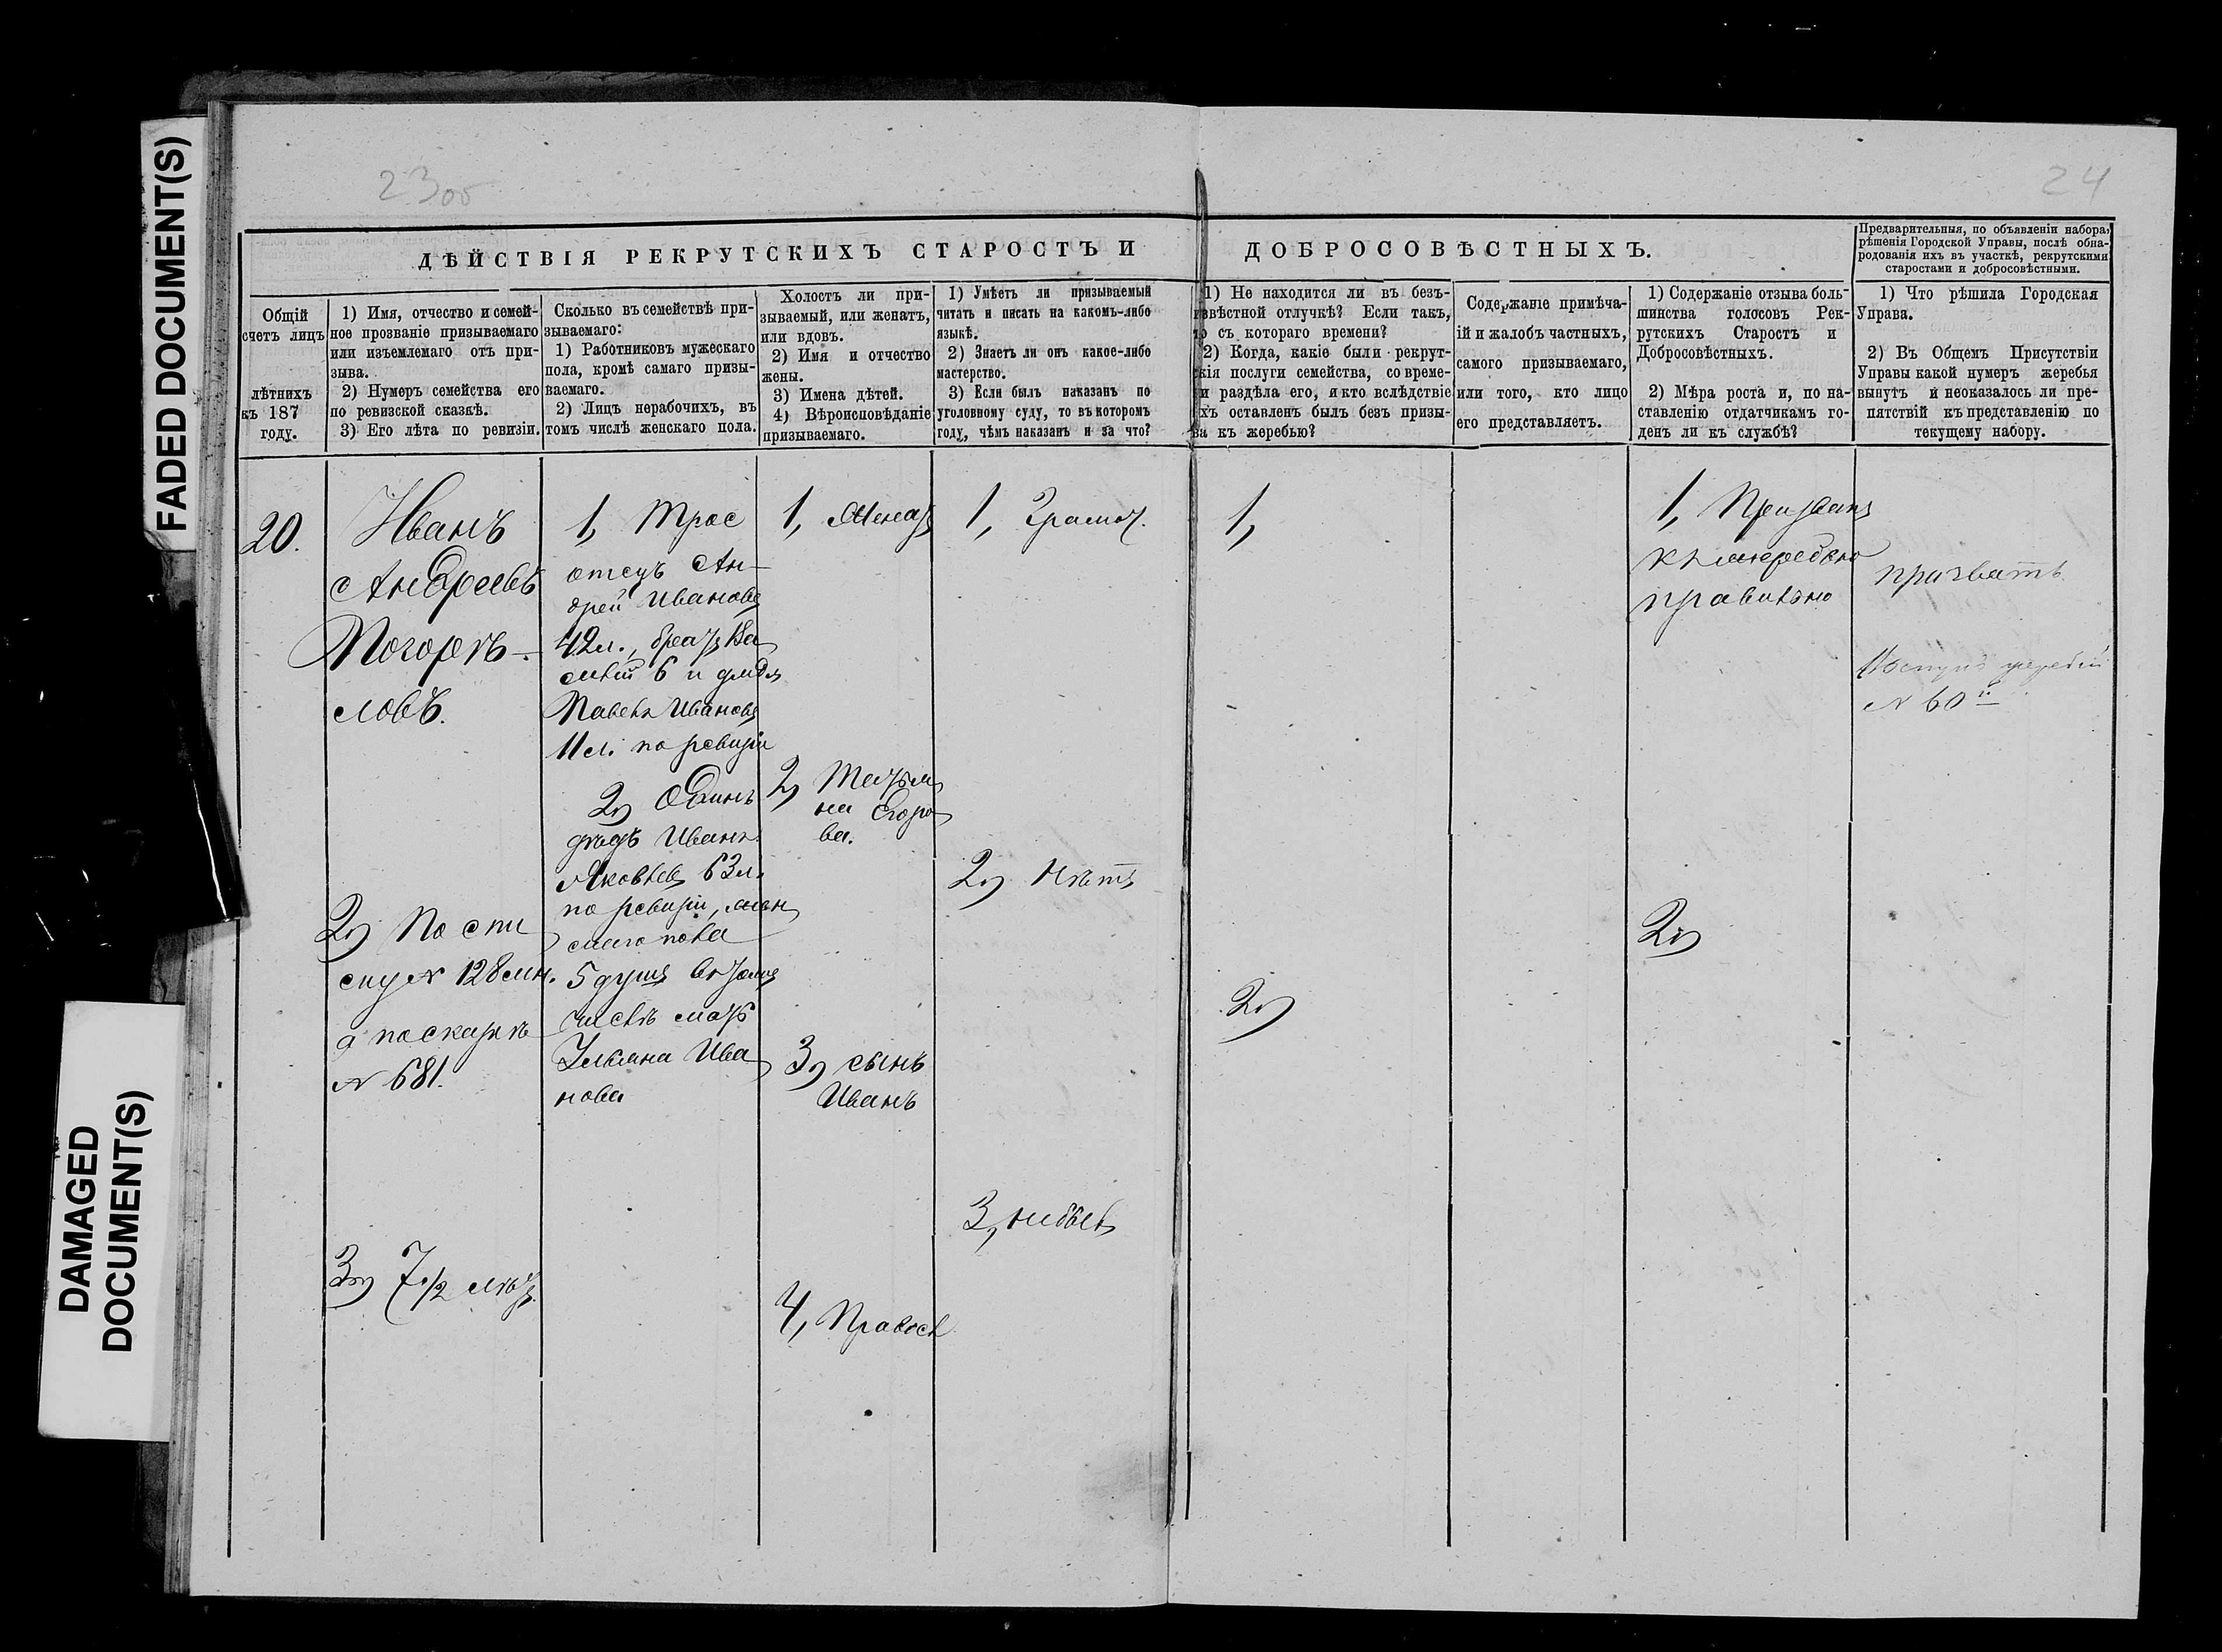 FADED DOCUMENT(S)
DAMAGED
DOCUMENT(S)
23об
24
ДѢЙСТВІЯ РЕКРУТСКИХЪ СТАРОСТЪ И
ДОБРОСОВѢСТНЫХЪ.
Предварительныя, по объявленіи набора,
рѣшенія Городской Управы, послѣ обна-
родованія ихъ въ участкѣ, рекрутскими
старостами и добросовѣстными.
Общій
счетъ лицъ
лѣтнихъ
къ 187
году.
1) Имя, отчество и семей-
ное прозваніе призываемаго
или изъемлемаго отъ при-
зыва.
2) Нумеръ семейства его
по ревизской сказкѣ.
3) Его лѣта по ревизіи.
Сколько въ семействѣ при-
зываемаго:
1) Работниковъ мужескаго
пола, кромѣ самаго призы-
ваемаго.
2) Лицъ нерабочихъ, въ
томъ числѣ женскаго пола.
Холостъ ли при-
зываемый, или женатъ,
или вдовъ.
2) Имя и отчество
жены.
3) Имена дѣтей.
4) Вѣроисповѣданіе
призываемаго.
1) Умѣетъ ли призываемый
читать и писать на какомъ-либо
языкѣ.
2) Знаетъ ли онъ какое-либо
мастерство.
3) Если былъ наказанъ по
уголовному суду, то въ которомъ
году, чѣмъ наказанъ и за что?
1) Не находится ли въ безъ-
извѣстной отлучкѣ? Если такъ,
то съ котораго времени?
2) Когда, какіе были рекрут-
скія послуги семейства, со време-
ни раздѣла его, и кто вслѣдствіе
ихъ оставленъ былъ безъ призы-
ва къ жеребью?
Содержаніе примѣча-
ій и жалобъ частныхъ,
самого призываемаго,
или того, кто лицо
его представляетъ.
1) Содержаніе отзыва боль-
шинства голосовъ Рек-
рутскихъ Старостъ и
Добросовѣстныхъ.
2) Мѣра роста и, по на-
ставленію отдатчикамъ го-
денъ ли къ службѣ?
1) Что рѣшила Городская
Управа.
2) Въ Общемъ Присутствіи
Управы какой нумеръ жеребья
вынутъ и неоказалось ли пре-
пятствій къ представленію по
текущему набору.
20.
Иванъ
Андреевъ
Погорѣ-
ловъ.
2) По спи
ску № 128 мн.
а по сказкѣ
№ 681.
3) 7 1/2 лѣтъ.
1, Трое
отецъ Ан-
дрей Ивановъ
42 л., братъ Ва
силій 6 и дядя
Павелъ Ивановъ
11 л. по ревизіи
2) Одинъ
дѣдъ Иванъ
Яковлевъ 63 л.
по ревизіи, жен
скаго пола
5 душъ въ томъ
числѣ мать
Ульяна Ива
нова
1, Женатъ
2) Татья
на Егоро
ва.
3) сынъ
Иванъ
4, Правосл.
1, Грамот.
2) Нѣтъ
3, небылъ
1,
2)
1, Призванъ
къ жеребью
правильно
2)
призвать.
Вынутъ жеребій
№ 60й